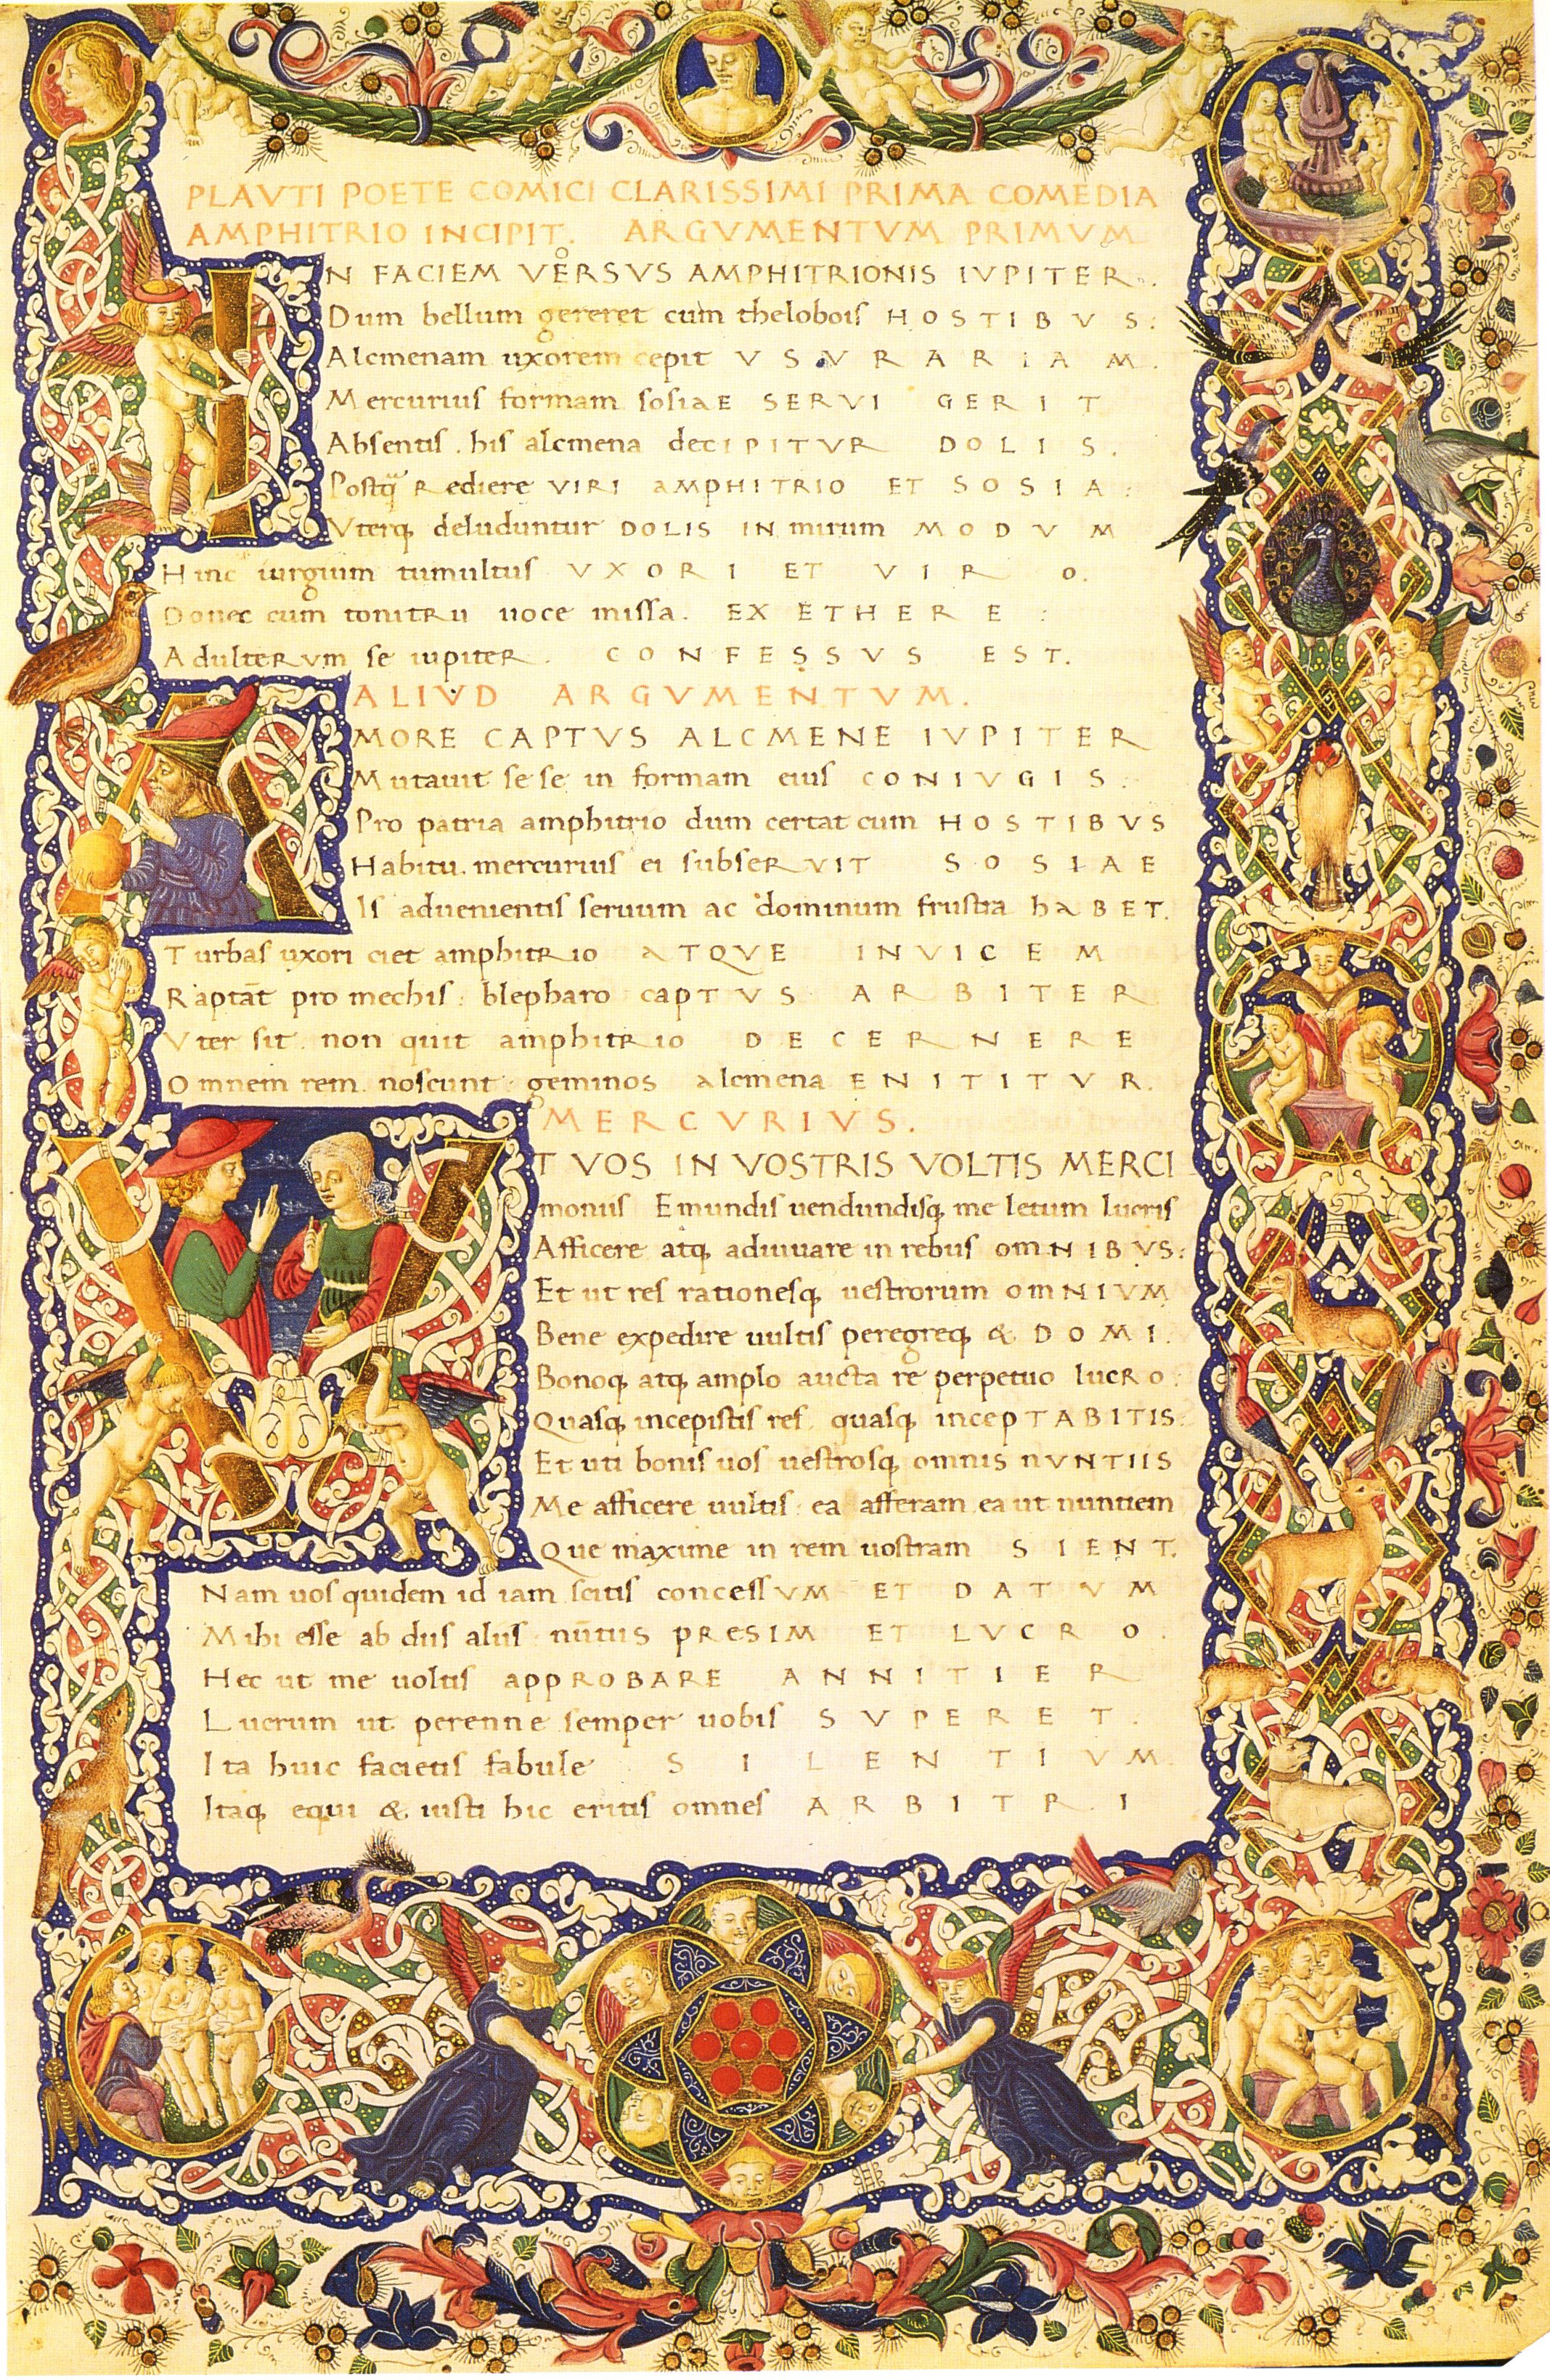 PLAVTI POETE COMICI CLARISSIMI PRIMA COMEDIA
AMPHITRIO INCIPIT. ARGVMENTVM PRIMVM
IN FACIEM VERSVS AMPHITRIONIS IVPITER.
Dum bellum gereret cum thelobois HOSTIBVS:
Alcmenam uxorem cepit VSVRARIAM.
Mercurius formam sosiaE SERVI GERIT
Absentis. his alcmena decIPITVR DOLIS.
Postq̃ Rediere VIRI AMPHITRIO ET SOSIA:
Vterq; deluduntur DOLIS IN mirum MODVM
Hinc iurgium tumultus VXORI ET VIRO.
Donec cum tonitRu uoce missa. EX ETHERE:
AdulteRVm se iupiteR. CONFESSVS EST.
ALIVD ARGVMENTVM.
AMORE CAPTVS ALCMENE IVPITER
Mutauit se se in formam eius CONIVGIS:
Pro patria amphitrio dum certat cum HOSTIBVS
Habitu. mercurius ei subseRVIT SOSIAE
Is aduenientis seruum ac dominum frustra haBET.
Turbas uxori ciet amphitRio ATQVE INVICEM
Raptāt pro mechis: blepharo capTVS ARBITER
Vter sit. non quit amphitRio DECERNERE
Omnem rem noscunt: geminos alcmena ENITITVR.
MERCVRIVS.
VT VOS IN VOSTRIS VOLTIS MERCI
moniis Emundis uendundisq; me letum lucris
Afficere atq; adiuuare in rebus omNIBVS:
Et ut res rationesq; uestrorum omNIVM
Bene expedire uultis peregreq; & DOMI.
Bonoq; atq; amplo aucta re perpetuo lucRO:
Quasq; incepistis res. quasq; incepTABITIS:
Et uti bonis uos uestrosq; omnis nVNTIIS
Me afficere uultis: ea afferam ea ut nuntiem
Que maxime in rem uostram SIENT.
Nam uos quidem id iam scitis concessVM ET DATVM
Mihi esse ab diis aliis: nūtiis pRESIM ET LVCRO.
Hec ut me uoltis appROBARE ANNITIER
Lucrum ut perenne semper uobis SVPERET.
Ita huic facietis fabule SILENTIVM.
Itaq; equi & iusti hic eritis omnes ARBITRI